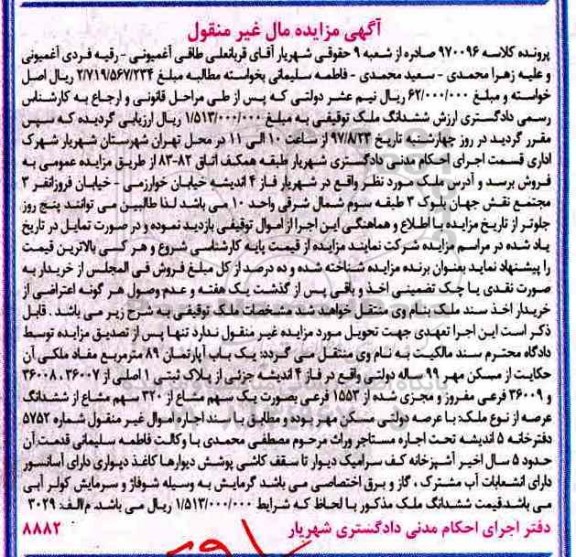 آگهی مزایده مال غیر منقول
پرونده کلاسه ۹۷۰۰۹۶ صادره از شعبه ۹ حقوقی شهریار آقای قربانعلی طاقی آغمیونی - رقیه فردی آغمیونی
و علیه زهرا محمدی - سعید محمدی - فاطمه سلیمانی بخواسته مطالبه مبلغ ۲/۷۱۹/۵۶۷/۲۳۴ ریال اصل
خواسته و مبلغ ۶۲/۰۰۰/۰۰۰ ریال نیم عشر دولتی که پس از طی مراحل قانونی و ارجاع به کارشناس
رسمی دادگستری ارزش ششدانگ ملک توقیفی به مبلغ ۱/۵۱۳/۰۰۰/۰۰۰ ریال ارزیابی گردیده که سپس
مقرر گردید در روز چهارشنبه تاریخ ۹۷/۸/۲۳ از ساعت ۱۰ الی ۱۱ در محل تهران شهرستان شهریار شهرک
اداری قسمت اجرای احکام مدنی دادگستری شهریار طبقه همکف اتاق ۸۲-۸۳ از طریق مزایده عمومی به
فروش برسد و آدرس ملک مورد نظر واقع در شهریار فاز ۴ اندیشه خیابان خوارزمی - خیابان فروزانفر ۳
مجتمع نقش جهان بلوک ۳ طبقه سوم شمال شرقی واحد ۱۰ می باشد لذا طالبین می توانند پنج روز
جلوتر از تاریخ مزایده با اطلاع و هماهنگی این اجرا از اموال توقیفی بازدید نموده و در صورت تمایل در تاریخ
یاد شده در مراسم مزایده شرکت نمایند مزایده از قیمت پایه کارشناسی شروع و هر کسی بالاترین قیمت
را پیشنهاد نماید بعنوان برنده مزایده شناخته شده و ده درصد از کل مبلغ فروش فی المجلس از خریدار به
صورت نقدی یا چک تضمینی اخذ و باقی پس از گذشت یک هفته و عدم وصول هر گونه اعتراضی از
خریدار اخذ سند ملک بنام وی منتقل خواهد شد مشخصات ملک توقیفی به شرح زیر می باشد. قابل
ذکر است این اجرا تعهدی جهت تحویل مورد مزایده غیر منقول ندارد تنها پس از تصدیق مزایده توسط
دادگاه محترم سند مالکیت به نام وی منتقل می گردد: یک باب آپارتمان ۸۹ مترمربع مفاد ملکی آن
حکایت از مسکن مهر ۹۹ ساله دولتی واقع در فاز ۴ اندیشه جزئی از پلاک ثبتی ۱ اصلی از ۳۶۰۰۷، ۳۶۰۰۸
و ۳۶۰۰۹ فرعی مفروز و مجزی شده از ۱۵۵۳ فرعی بصورت یک سهم مشاع از ۳۲۰ سهم مشاع از ششدانگ
عرصه از نوع ملک: با عرصه دولتی مسکن مهر بوده و مطابق با سند اجاره اموال غیر منقول شماره ۵۷۵۲
دفترخانه ۵ اندیشه تحت اجاره مستاجر وراث مرحوم مصطفی محمدی با وکالت فاطمه سلیمانی قدمت آن
حدود ۵ سال اخیر آشپزخانه کف سرامیک دیوار تا سقف کاشی پوشش دیوارها کاغذ دیواری دارای آسانسور
دارای انشعابات آب مشترک، گاز و برق اختصاصی می باشد گرمایش به وسیله شوفاژ و سرمایش کولر آبی
می باشد قیمت ششدانگ ملک مذکور با لحاظ کلیه شرایط ۱/۵۱۳/۰۰۰/۰۰۰ ریال می باشد. م الف: ۳۰۲۹
دفتر اجرای احکام مدنی دادگستری شهریار ۸۸۸۲